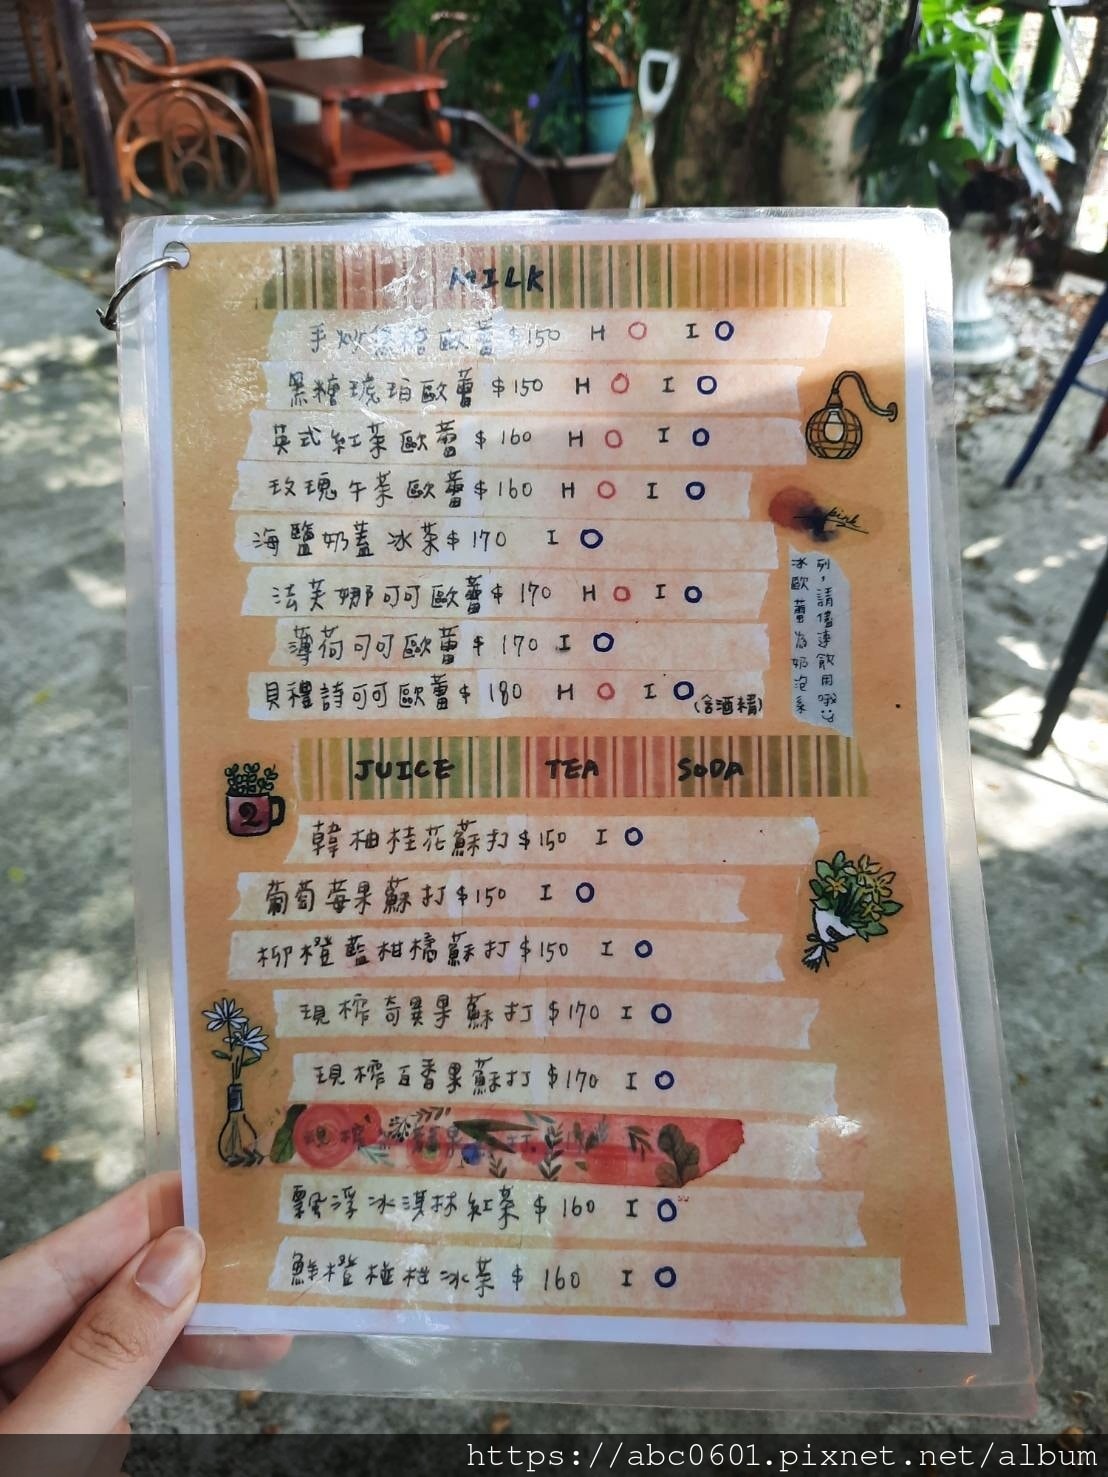 MILK
手炒黑糖歐蕾 $150 H O I O
黑糖琥珀歐蕾 $150 H O I O
英式紅茶歐蕾 $160 H O I O
玫瑰午茶歐蕾 $160 H O I O
海鹽奶蓋冰茶 $170 I O
法芙娜可可歐蕾 $170 H O I O
薄荷可可歐蕾 $170 I O
貝禮詩可可歐蕾 $180 H O I O
(含酒精)
pink
冰歐蕾為奶泡系
列，請儘速飲用哦
JUICE TEA SODA
2
韓柚桂花蘇打 $150 I O
葡萄莓果蘇打 $150 I O
柳橙藍柑橘蘇打 $150 I O
現榨奇異果蘇打 $170 I O
現榨百香果蘇打 $170 I O
現榨 蘋果 打
飄浮冰淇淋紅茶 $160 I O
鮮橙桂冰茶 $160 I O
https://abc0601.pixnet.net/album